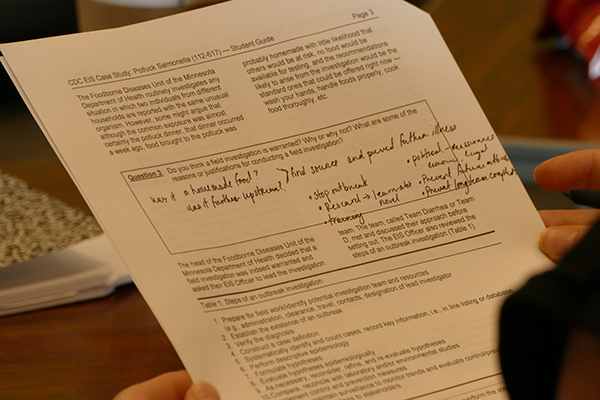 CDC EIS Case Study: Potluck Salmonella (112-617) — Student Guide
Page 3
The Foodborne Diseases Unit of the Minnesota
Department of Health routinely investigates any
situation in which two individuals from different
households are reported with the same unusual
organism. However, some might argue that
although the common exposure was almost
certainly the potluck dinner, that dinner occurred
a week ago, food brought to the potluck was
probably homemade with little likelihood that
others would be at risk, no food would be
available for testing, and the recommendations
likely to arise from the investigation would be the
standard ones that could be offered right now —
wash your hands, handle foods properly, cook
food thoroughly, etc.
Question 3 Do you think a field investigation is warranted? Why or why not? What are some of the
reasons or justifications for conducting a field investigation?
was it a homemade food?
was it further upstream?
find source and prevent further illness
• stop outbreak
• Research → learn abt
novel
• training
• political
legal
• Prevent future
• Prevent longterm
The head of the Foodborne Diseases Unit of the
Minnesota Department of Health decided that a
field investigation was indeed warranted and
asked their EIS Officer to lead the investigation
team. The team, called Team Diarrhea or Team
D, met and discussed their approach before
setting out. The EIS Officer also reviewed the
steps of an outbreak investigation (Table 1).
Table 1. Steps of an outbreak investigation.
1. Prepare for field work/identify potential investigation team and resources
(e.g., administration, clearance, travel, contacts, designation of lead investigator
2. Establish the existence of an outbreak.
3. Verify the diagnosis
4. Construct a case definition
5. Systematically identify and count cases, record key information, i.e., in line listing or database
6. Perform descriptive epidemiology
Formulate hypotheses
Evaluate hypotheses epidemiologically
As necessary, reconsider, refine, and re-evaluate hypotheses
Compare, reconcile with laboratory and/or environmental studies
maintain surveillance to monitor trends and evaluate control
to stakeholders